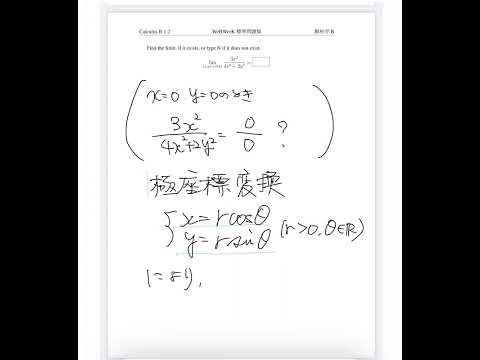 Calculus-B 1.2 WeBWorK 標準問題集 解析学 B
Find the limit, if it exists, or type N if it does not exist.
lim (x,y)→(0,0) 3x² / 4x² + 2y² =
x=0 y=0のとき
3x² / 4x²+2y² = 0/0 ?
極座標変換
{ x=r cosθ
y=r sinθ (r>0, θ∈ℝ)
により,